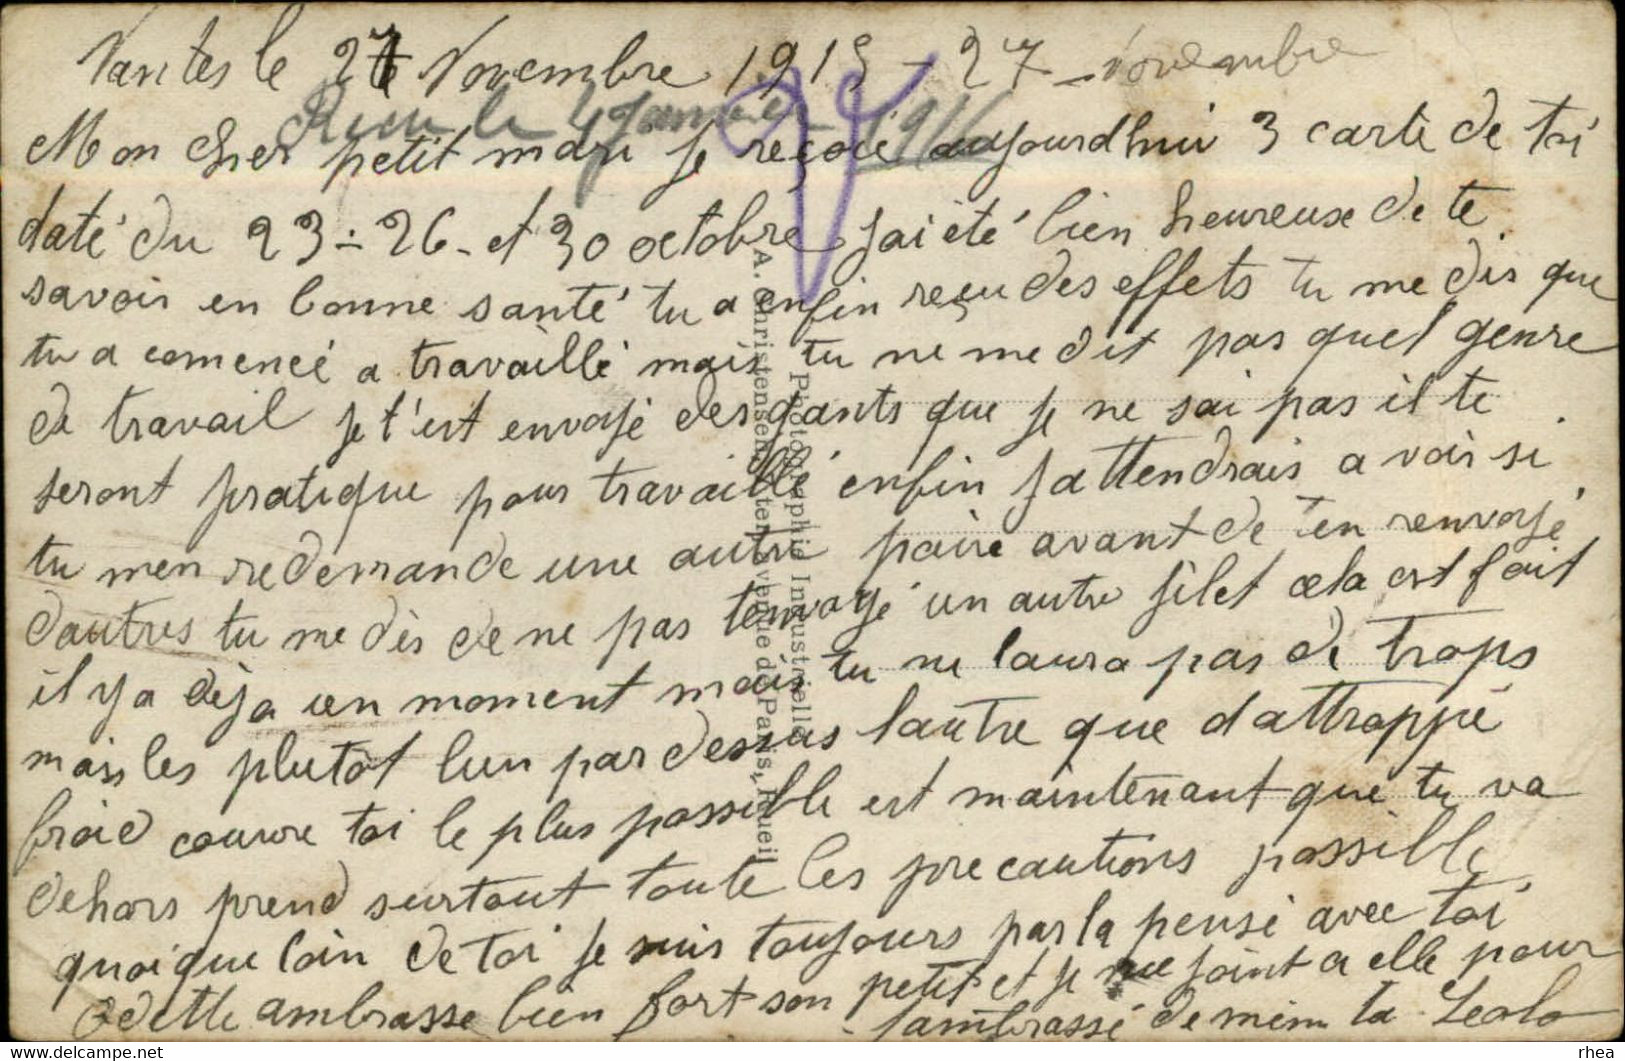 Nantes le 27 Novembre 1915 - 27 novembre
Reçu le 4 Janvier 1916
Mon cher petit mari je reçoie aujourdhui 3 carte de toi
daté du 23 - 26 - et 30 octobre jai été bien heureuse de te
savoir en bonne santé tu a enfin reçu des effets tu me dis que
tu a comencé a travaillé mais tu ne me dit pas quel genre
de travail je t'est envoyé des gants que je ne sai pas il te
seront pratique pour travaillé enfin jattendrais a voir si
tu men redemande une autre paire avant de ten renvoyé
dautres tu me dis de ne pas tenvoyé un autre filet cela est fait
il y a deja un moment mais tu ne laura pas de trops
mais les plutot lun par dessus lautre que dattrappé
froid couvre toi le plus possible est maintenant que tu va
dehors prend surtout toute les precautions possible
quoique loin de toi je suis toujours par la pensé avec toi
Odette ambrasse bien fort son petit et je me joint a elle pour
lambrassé de mem ta
Photographie Industrielle
A. Christensen, avenue de Paris, Rueil